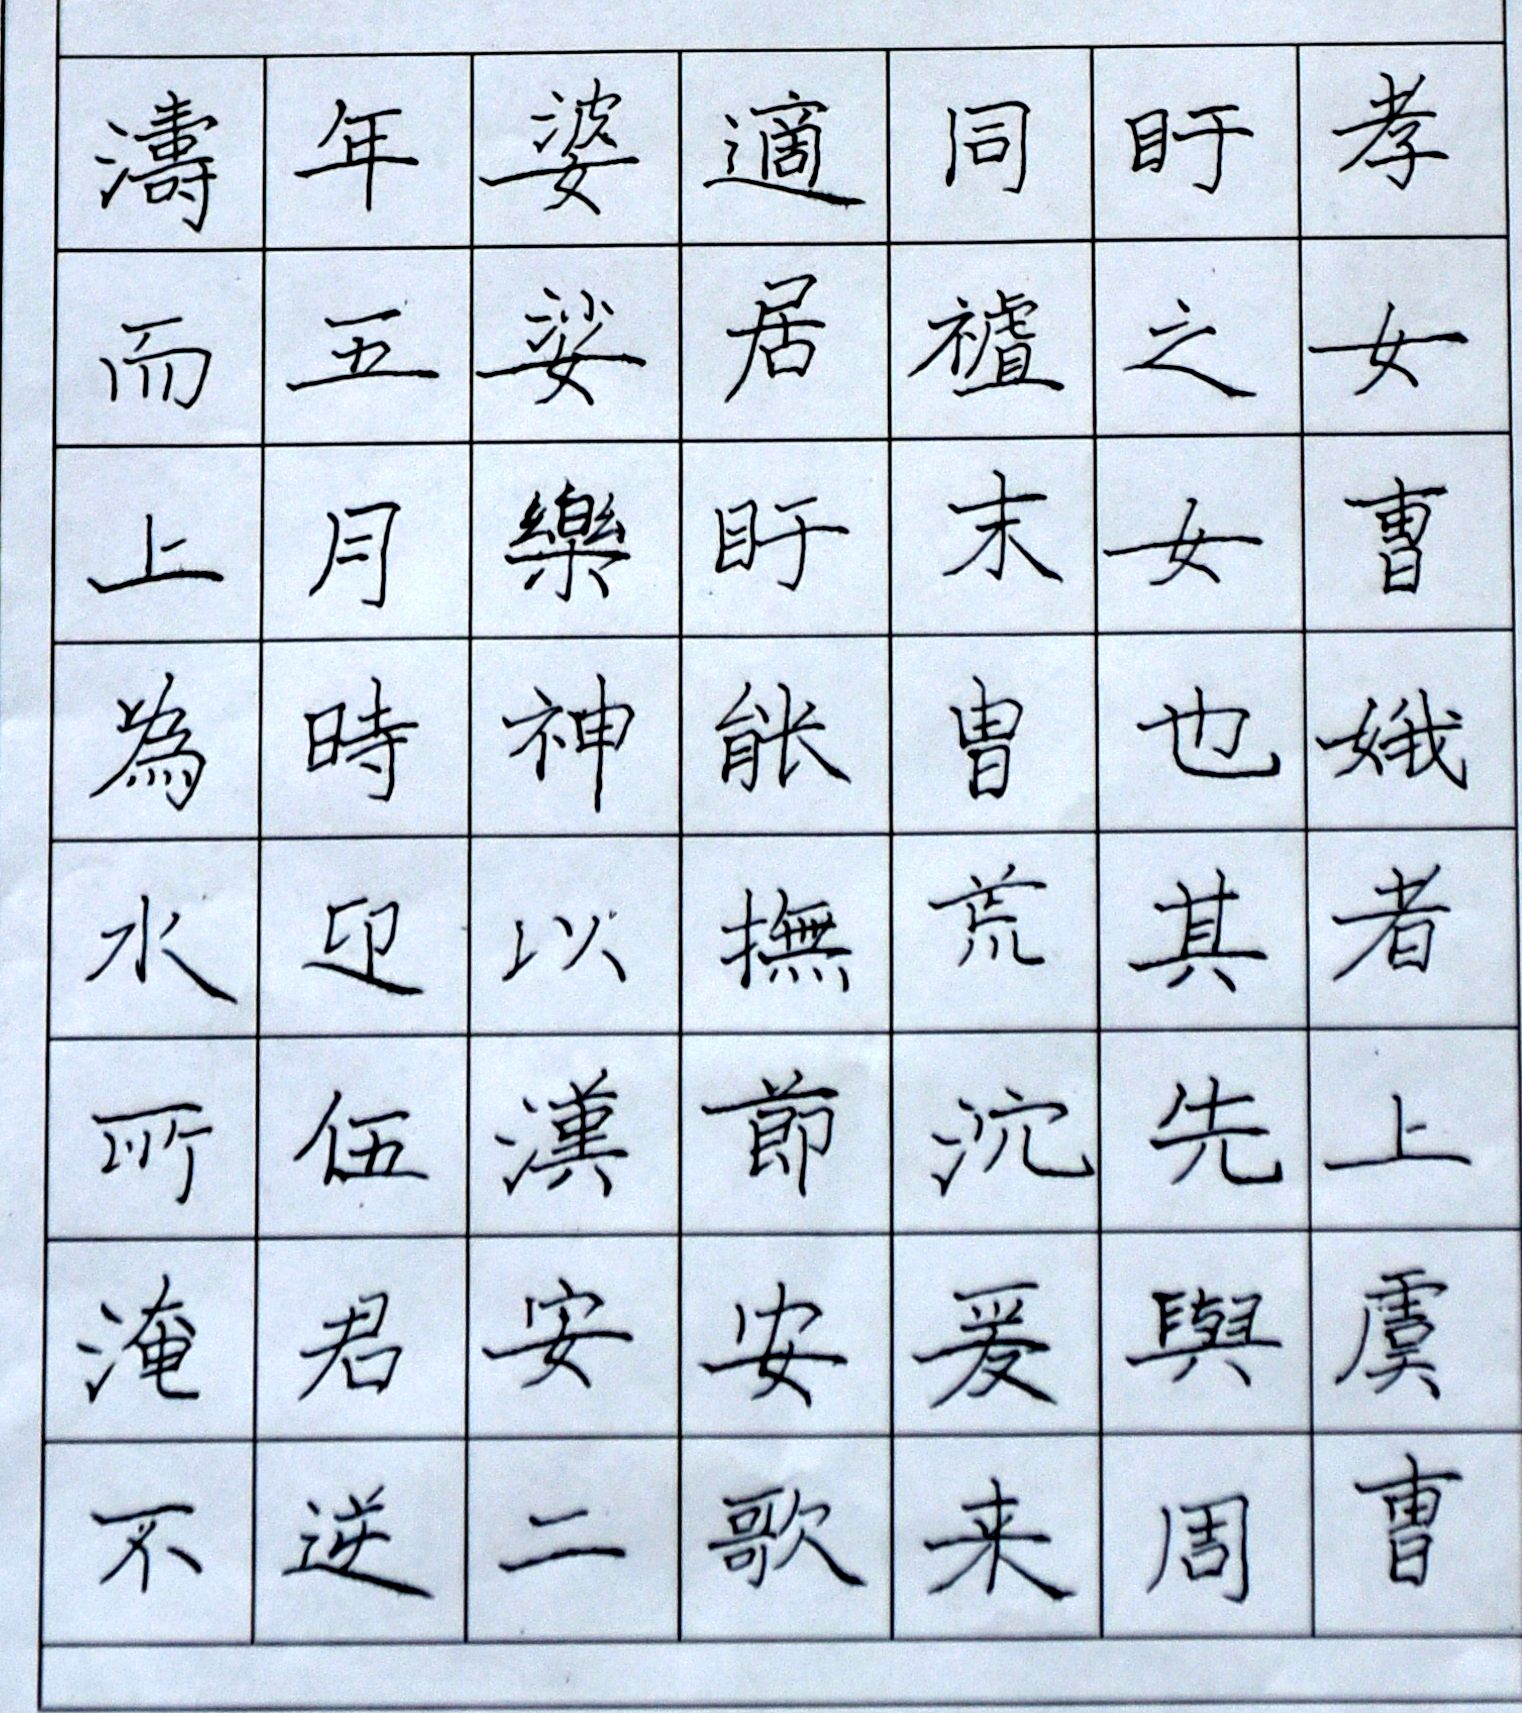 孝女曹娥者上虞曹
盱之女也其先與周
同禇末曺荒沉爰来
適居盱能撫節安歌
婆娑樂神以漢安二
年五月時迎伍君逆
濤而上為水所淹不